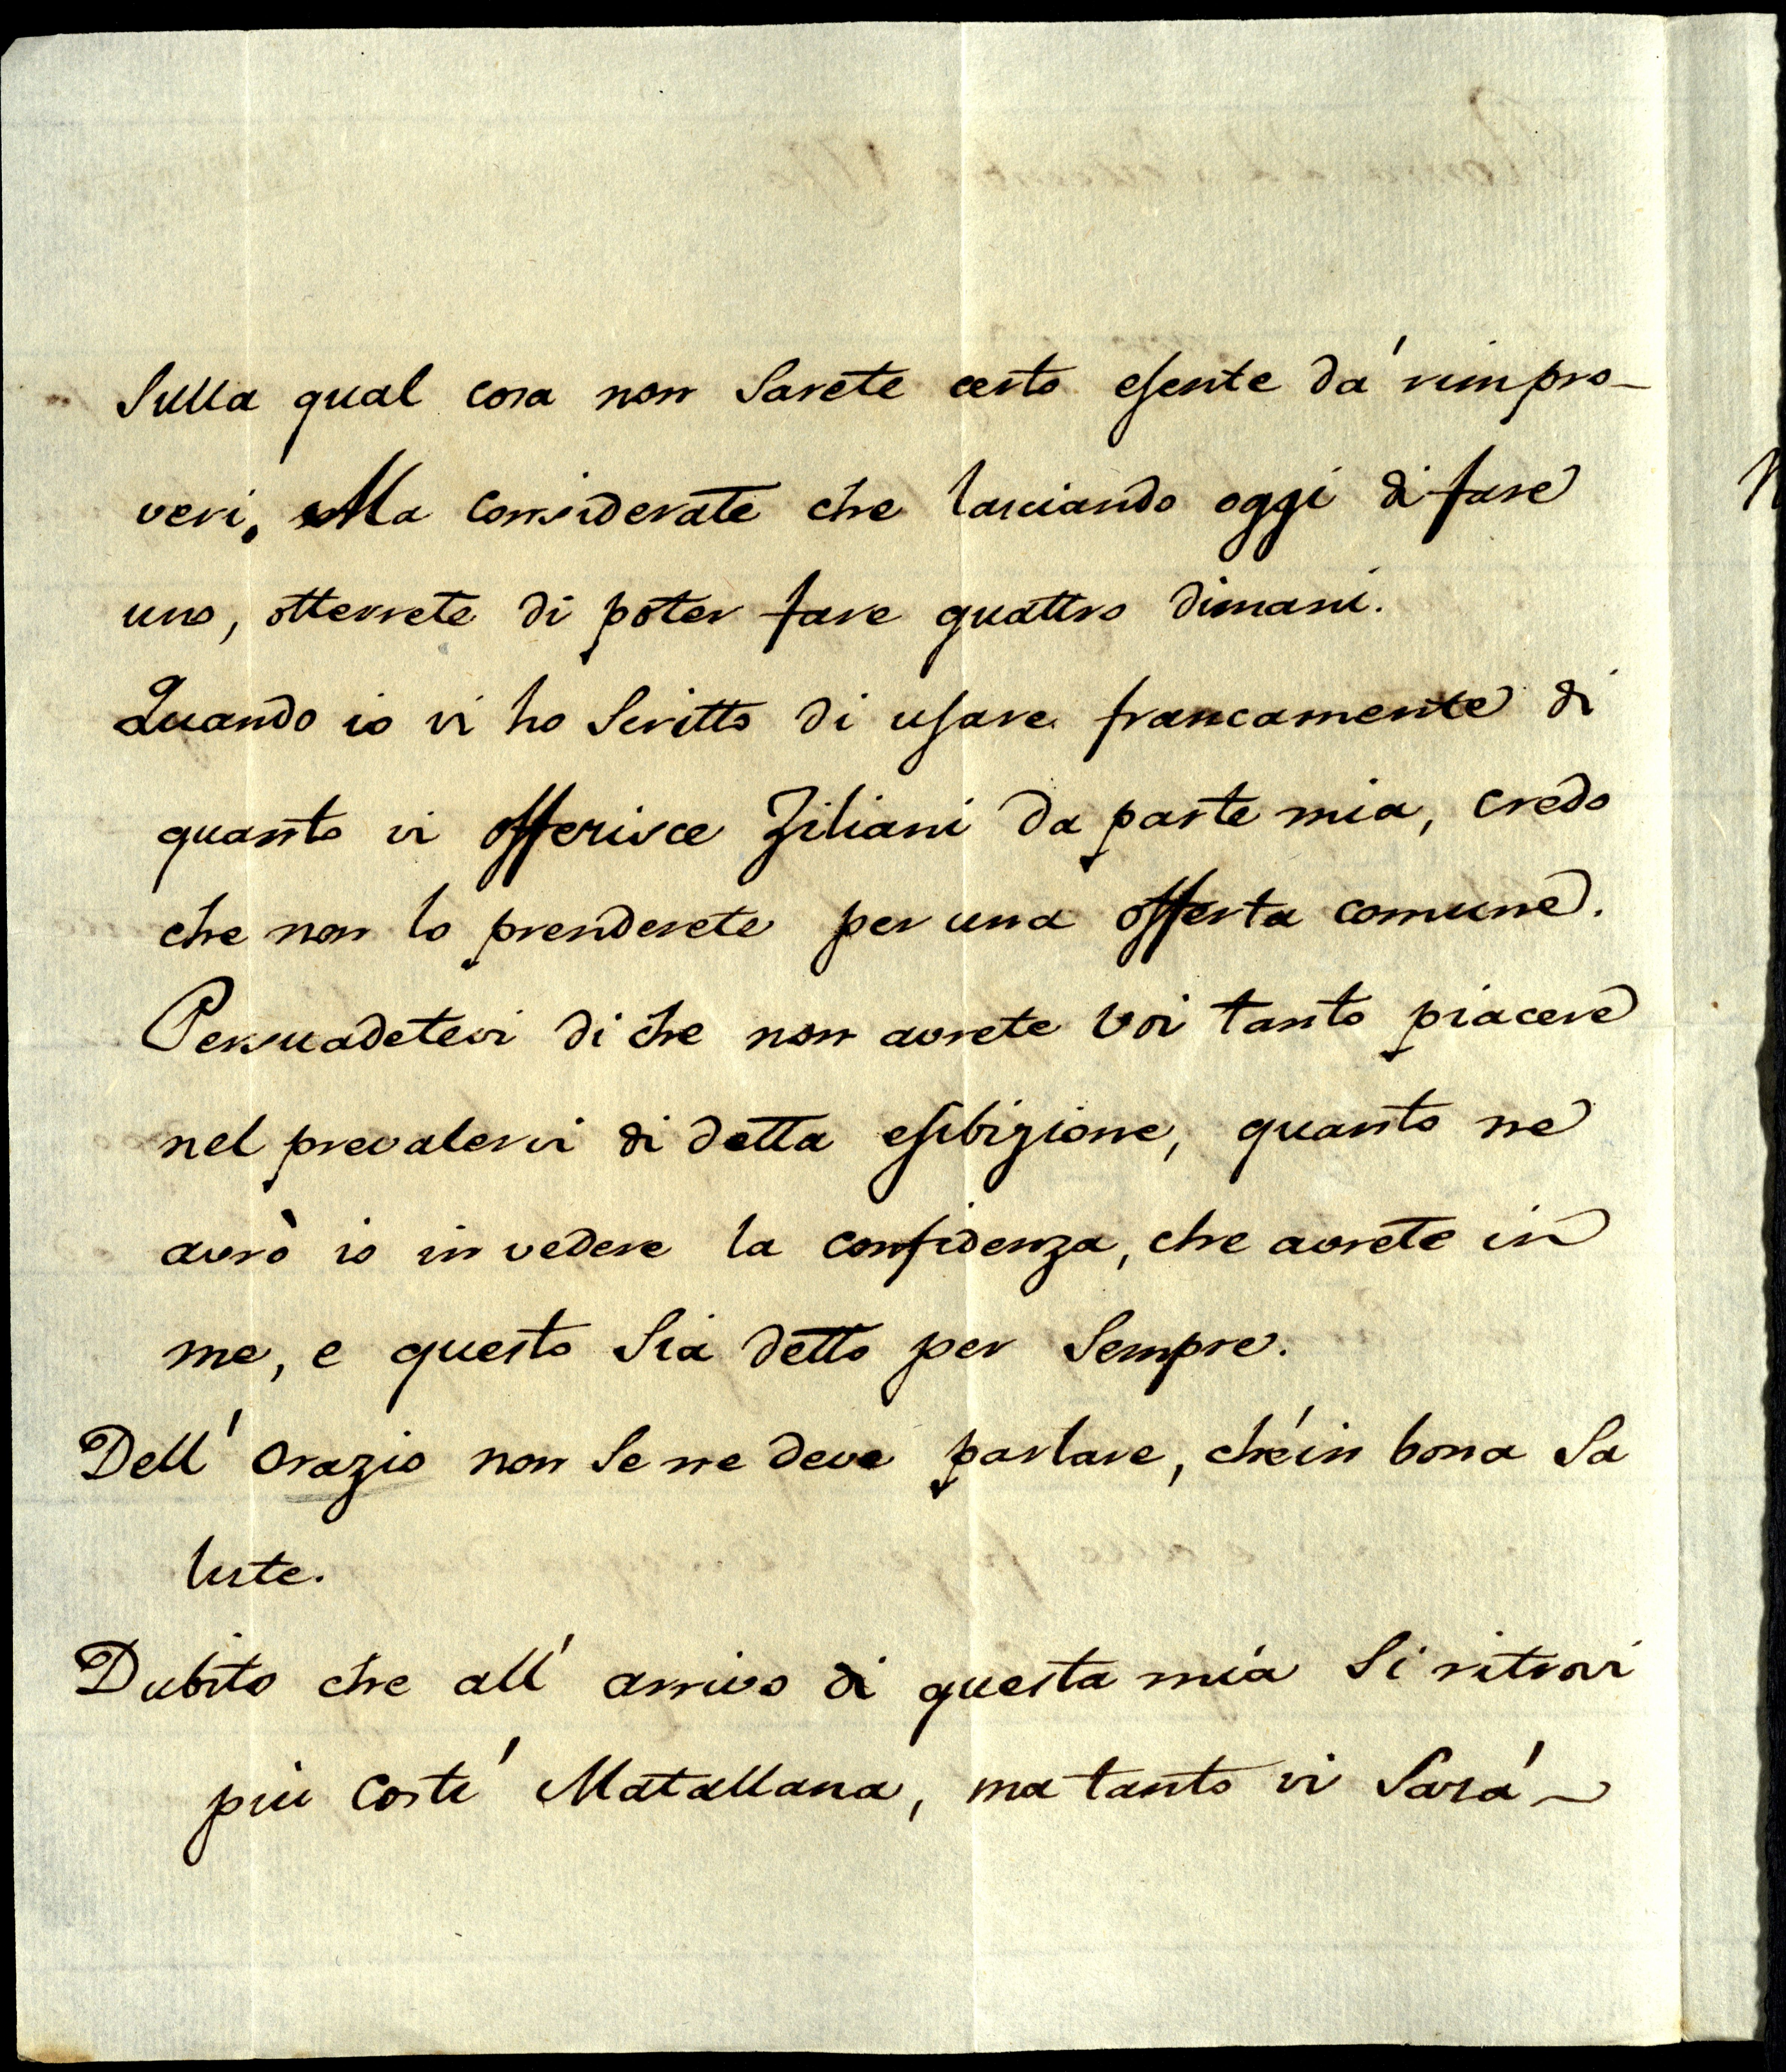 Sulla qual cosa non Sarete certo esente da' rimpro-
veri. Ma considerate che lasciando oggi di fare
uno, otterrete di poter fare quattro dimani.
Quando io vi ho Scritto di usare francamente di
quanto vi offerisce Ziliani da parte mia, credo
che non lo prenderete per una offerta comune.
Persuadetevi di che non avrete voi tanto piacere
nel prevalervi di detta esibizione, quanto ne
avrò io in vedere la confidenza, che avrete in
me, e questo Sia detto per Sempre.
Dell' Orazio non Se ne deve parlare, ch'é in bona Sa
lute.
Dubito che all' arrivo di questa mia Si ritrovi
piu costi' Matallana, ma tanto vi Sará